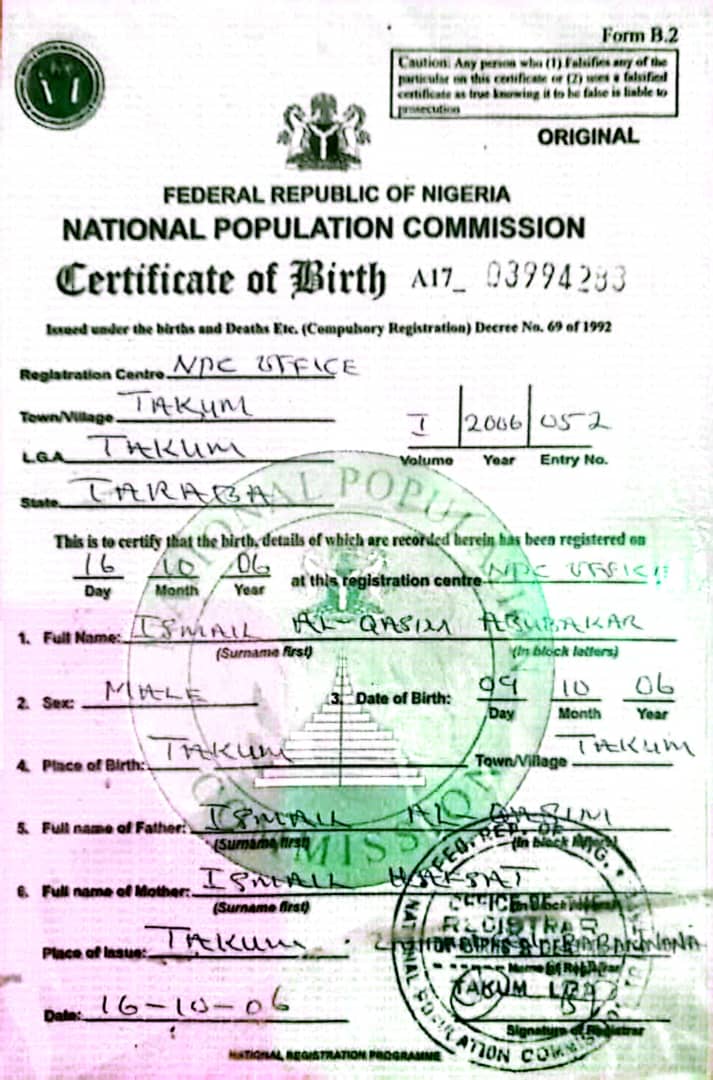 Form B.2
Caution: Any person who (1) Falsifies any of the
particular on this certificate or (2) uses a falsified
certificate as true knowing it to be false is liable to
prosecution
ORIGINAL
FEDERAL REPUBLIC OF NIGERIA
NATIONAL POPULATION COMMISSION
Certificate of Birth A17_ 03994283
Issued under the births and Deaths Etc. (Compulsory Registration) Decree No. 69 of 1992
Registration Centre NPC OFFICE
Town/Village TAKUM
L.G.A. TAKUM
I 2006 052
Volume Year Entry No.
State TARABA
This is to certify that the birth, details of which are recorded herein has been registered on
16 10 06 at this registration centre NPC OFFICE
Day Month Year
1. Full Name: ISMAIL AL-QASIM ABUBAKAR
(Surname first) (In block letters)
2. Sex: MALE 3. Date of Birth: 09 10 06
Day Month Year
4. Place of Birth: TAKUM Town/Village TAKUM
5. Full name of Father: ISMAIL AL-QASIM
(Surname first) (In block letters)
6. Full name of Mother: ISMAIL
(Surname first)
Place of Issue: TAKUM
Name of Registrar
Date: 16-10-06
Signature of Registrar
NATIONAL REGISTRATION PROGRAMME
NATIONAL POPULATION COMMISSION
REGISTRAR
TAKUM LGA
NATIONAL POPULATION